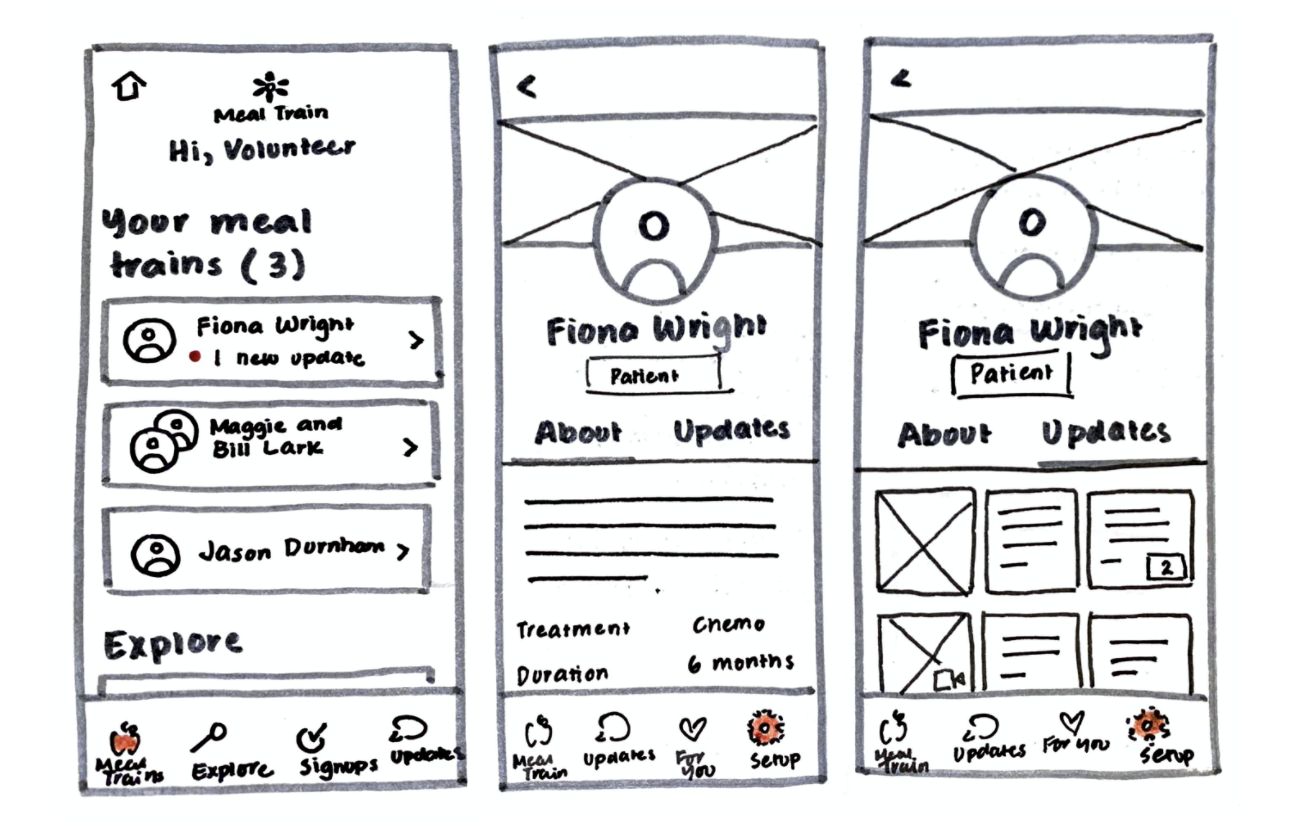 Meal Train
Hi, Volunteer
Your meal
trains (3)
Fiona Wright
1 new update
>
Maggie and
Bill Lark
>
Jason Durnham >
Explore
Meal
Trains
Explore
Signups
Updates
<
Fiona Wright
Patient
About Updates
Treatment Chemo
Duration 6 months
Meal
Train
Updates
For
You
Setup
<
Fiona Wright
Patient
About Updates
2
Meal
Train
Updates
For you
Setup